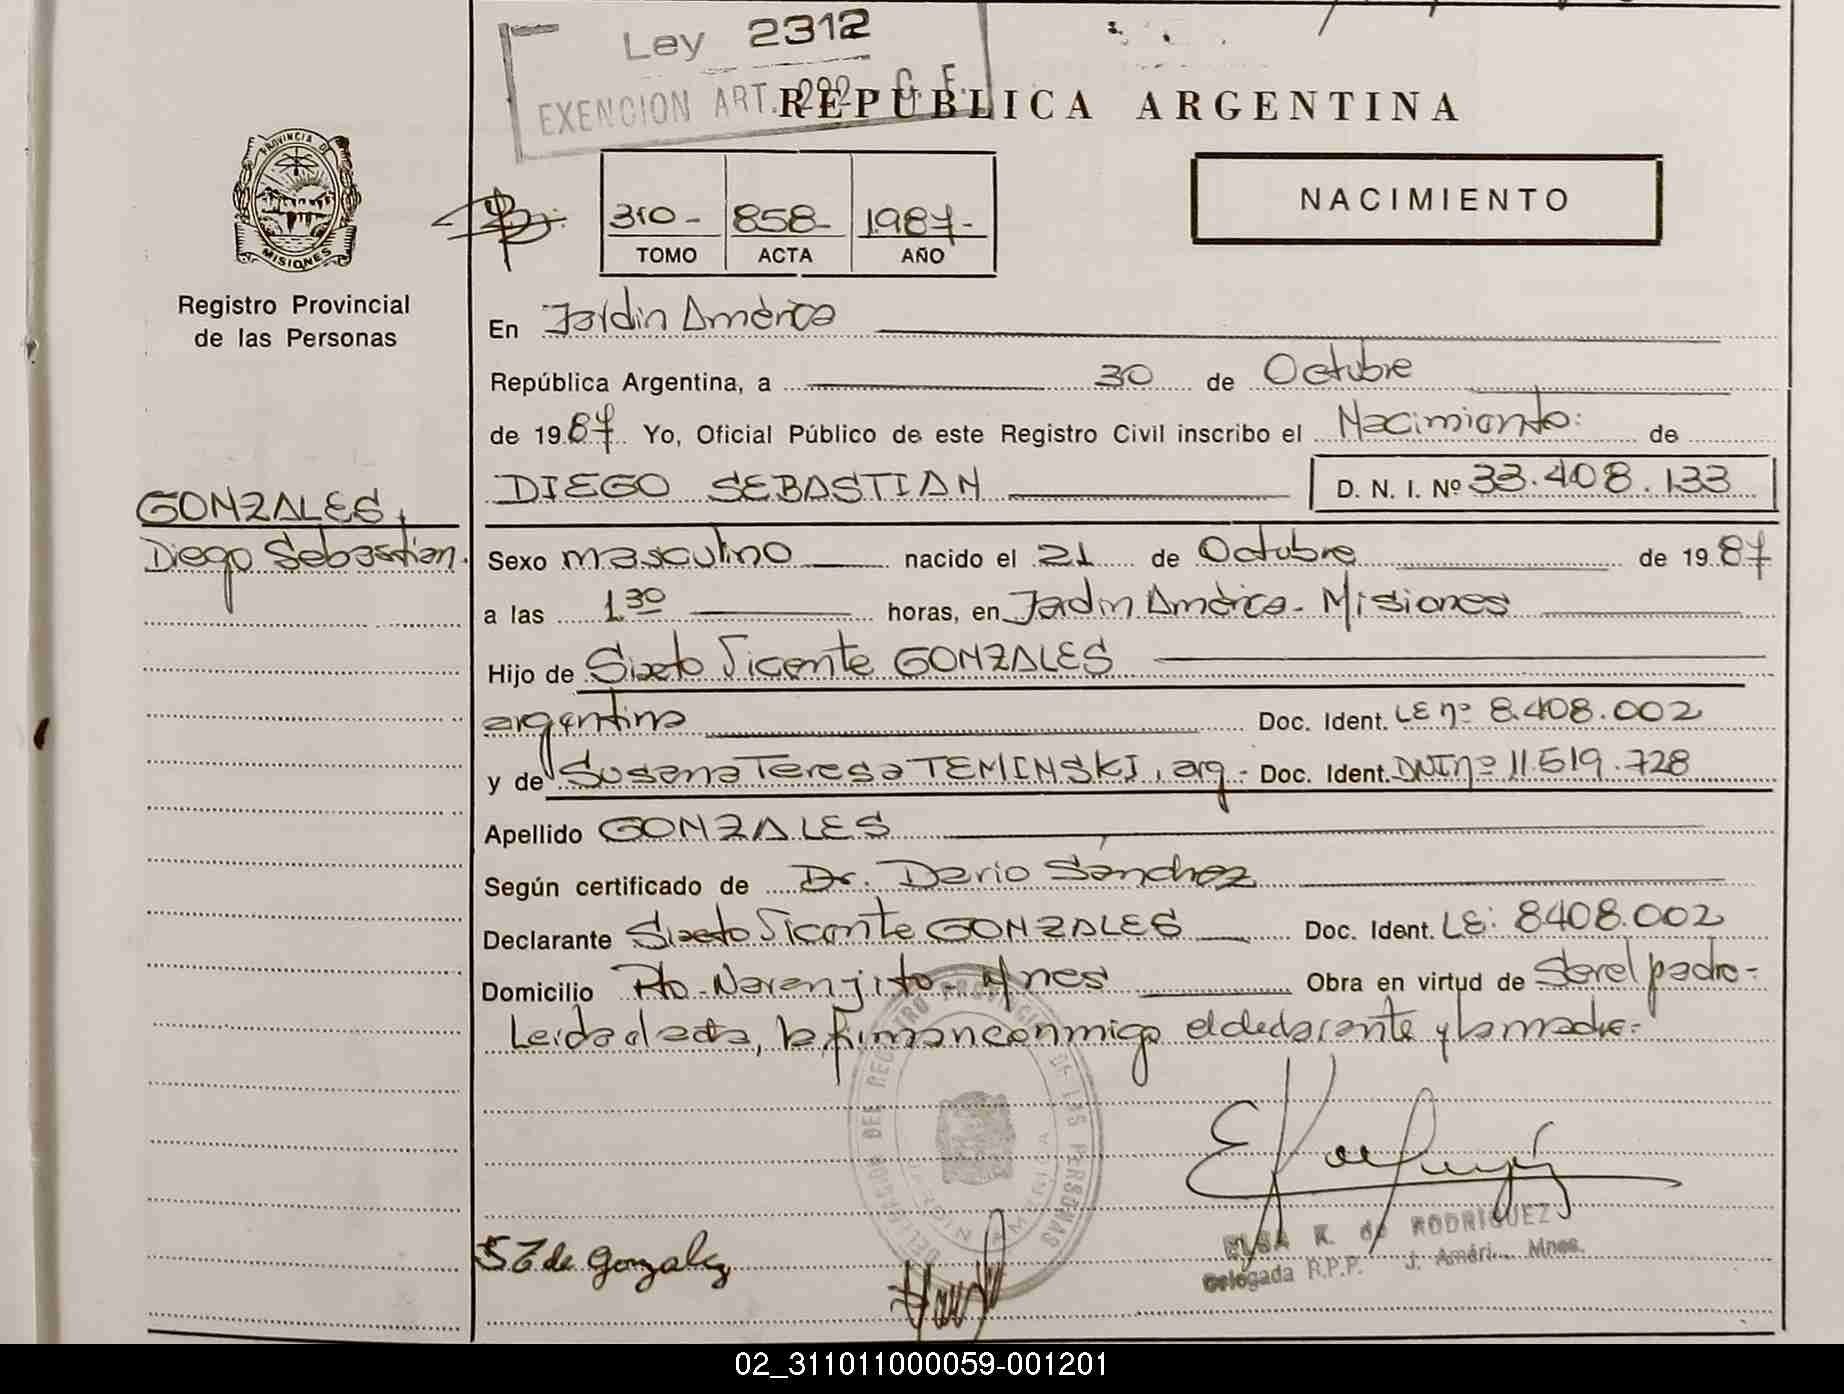 Ley 2312
EXENCION ART. 292 C. F.
REPUBLICA ARGENTINA
PROVINCIA DE
MISIONES
Registro Provincial
de las Personas
310- 858- 1987-
TOMO ACTA AÑO
NACIMIENTO
En Jardin América
República Argentina, a 30 de Octubre
de 1987 Yo, Oficial Público de este Registro Civil inscribo el Nacimiento: de
DIEGO SEBASTIAN D. N. I. Nº 33.408.133
GONZALES,
Diego Sebastian.
Sexo masculino nacido el 21 de Octubre de 1987
a las 1 30 horas, en Jardin América- Misiones
Hijo de Sixto Vicente GONZALES
argentino Doc. Ident. LE nº 8.408.002
y de Susana Teresa TEMINSKI, arg.- Doc. Ident. DNI nº 11.519.728
Apellido GONZALES
Según certificado de Dr. Dario Sánchez
Declarante Sixto Vicente GONZALES Doc. Ident. LE: 8408.002
Domicilio Pto. Naranjito- Mnes Obra en virtud de Ser el padre-
Leida el acta, la firman conmigo el declarante y la madre-
DELEGACION DEL REGISTRO PROVINCIAL DE LAS PERSONAS
JARDIN AMERICA
ELSA K. de RODRIGUEZ
Delegada R.P.P. J. Améri.. Mnes.
de Gonzalez
02_311011000059-001201